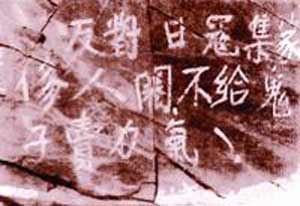 反對日寇集家
修人不給鬼
子賣力氣!